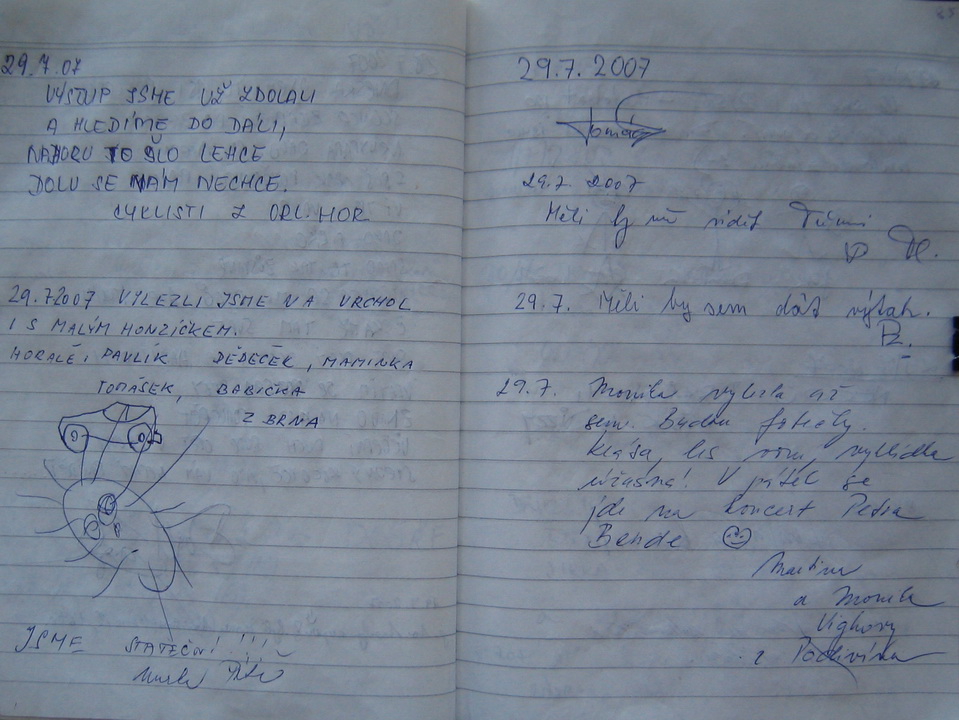 29.7.07
VÝSTUP JSME UŽ ZDOLALI
A HLEDÍME DO DÁLI,
NAHORU TO ŠLO LEHCE
DOLU SE NÁM NECHCE.
CYKLISTI Z ORL. HOR
29.7.2007 VYLEZLI JSME NA VRCHOL
I S MALÝM HONZÍČKEM.
HORALÉ: PAVLÍK DĚDEČEK, MAMINKA
TOMÁŠEK, BABIČKA
Z BRNA
JSME STATEČNÍ !!!
29.7.2007
Tomáš
29.7. 2007
Měli by
29.7. Měli by sem dát výtah.
29.7. Monika vylezla až
sem. Budou fotečky.
Krása, les voní, vyhlídka
úžasná! V pátek se
jde na koncert Petra
Bende
Martina
a Monika
z